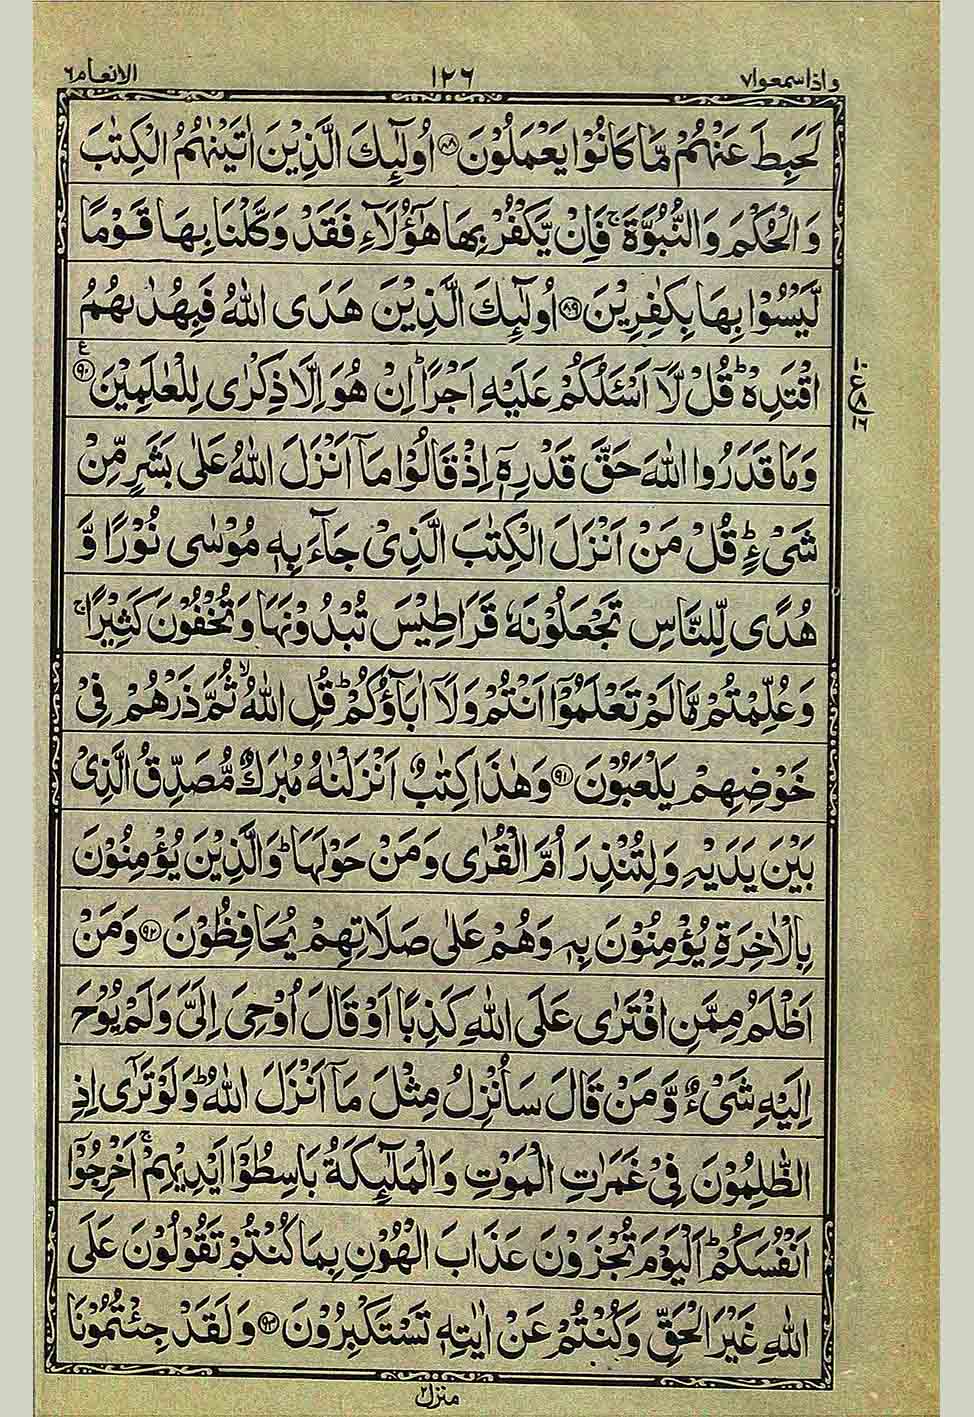 واذاسمعوا٧ ١٢٦ الانعام٦
لَحَبِطَ عَنْهُمْ مَّا كَانُوْا يَعْمَلُوْنَ ﴿٨٨﴾ اُولٰٓئِكَ الَّذِيْنَ اٰتَيْنٰهُمُ الْكِتٰبَ
وَالْحُكْمَ وَالنُّبُوَّةَ ۚ فَاِنْ يَّكْفُرْ بِهَا هٰٓؤُلَآءِ فَقَدْ وَكَّلْنَا بِهَا قَوْمًا
لَّيْسُوْا بِهَا بِكٰفِرِيْنَ ﴿٨٩﴾ اُولٰٓئِكَ الَّذِيْنَ هَدَى اللّٰهُ فَبِهُدٰىهُمُ
اقْتَدِهْ ؕ قُلْ لَّاۤ اَسْـَٔلُكُمْ عَلَيْهِ اَجْرًا ؕ اِنْ هُوَ اِلَّا ذِكْرٰى لِلْعٰلَمِيْنَ ﴿٩٠﴾ ع
وَمَا قَدَرُوا اللّٰهَ حَقَّ قَدْرِهٖۤ اِذْ قَالُوْا مَاۤ اَنْزَلَ اللّٰهُ عَلٰى بَشَرٍ مِّنْ
شَىْءٍ ؕ قُلْ مَنْ اَنْزَلَ الْكِتٰبَ الَّذِىْ جَآءَ بِهٖ مُوْسٰى نُوْرًا وَّ
هُدًى لِّلنَّاسِ تَجْعَلُوْنَهٗ قَرَاطِيْسَ تُبْدُوْنَهَا وَتُخْفُوْنَ كَثِيْرًا ۚ
وَعُلِّمْتُمْ مَّا لَمْ تَعْلَمُوْۤا اَنْتُمْ وَلَاۤ اٰبَآؤُكُمْ ؕ قُلِ اللّٰهُ ۙ ثُمَّ ذَرْهُمْ فِىْ
خَوْضِهِمْ يَلْعَبُوْنَ ﴿٩١﴾ وَهٰذَا كِتٰبٌ اَنْزَلْنٰهُ مُبٰرَكٌ مُّصَدِّقُ الَّذِىْ
بَيْنَ يَدَيْهِ وَلِتُنْذِرَ اُمَّ الْقُرٰى وَمَنْ حَوْلَهَا ؕ وَالَّذِيْنَ يُؤْمِنُوْنَ
بِالْاٰخِرَةِ يُؤْمِنُوْنَ بِهٖ وَهُمْ عَلٰى صَلَاتِهِمْ يُحَافِظُوْنَ ﴿٩٢﴾ وَمَنْ
اَظْلَمُ مِمَّنِ افْتَرٰى عَلَى اللّٰهِ كَذِبًا اَوْ قَالَ اُوْحِىَ اِلَىَّ وَلَمْ يُوْحَ
اِلَيْهِ شَىْءٌ وَّمَنْ قَالَ سَاُنْزِلُ مِثْلَ مَاۤ اَنْزَلَ اللّٰهُ ؕ وَلَوْ تَرٰٓى اِذِ
الظّٰلِمُوْنَ فِىْ غَمَرٰتِ الْمَوْتِ وَالْمَلٰٓئِكَةُ بَاسِطُوْۤا اَيْدِيْهِمْ ۚ اَخْرِجُوْۤا
اَنْفُسَكُمْ ؕ اَلْيَوْمَ تُجْزَوْنَ عَذَابَ الْهُوْنِ بِمَا كُنْتُمْ تَقُوْلُوْنَ عَلَى
اللّٰهِ غَيْرَ الْحَقِّ وَكُنْتُمْ عَنْ اٰيٰتِهٖ تَسْتَكْبِرُوْنَ ﴿٩٣﴾ وَلَقَدْ جِئْتُمُوْنَا
منزل٢